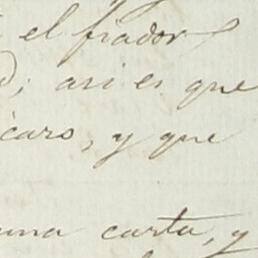 el fiador
; asi es que
caro, y que
una carta, y